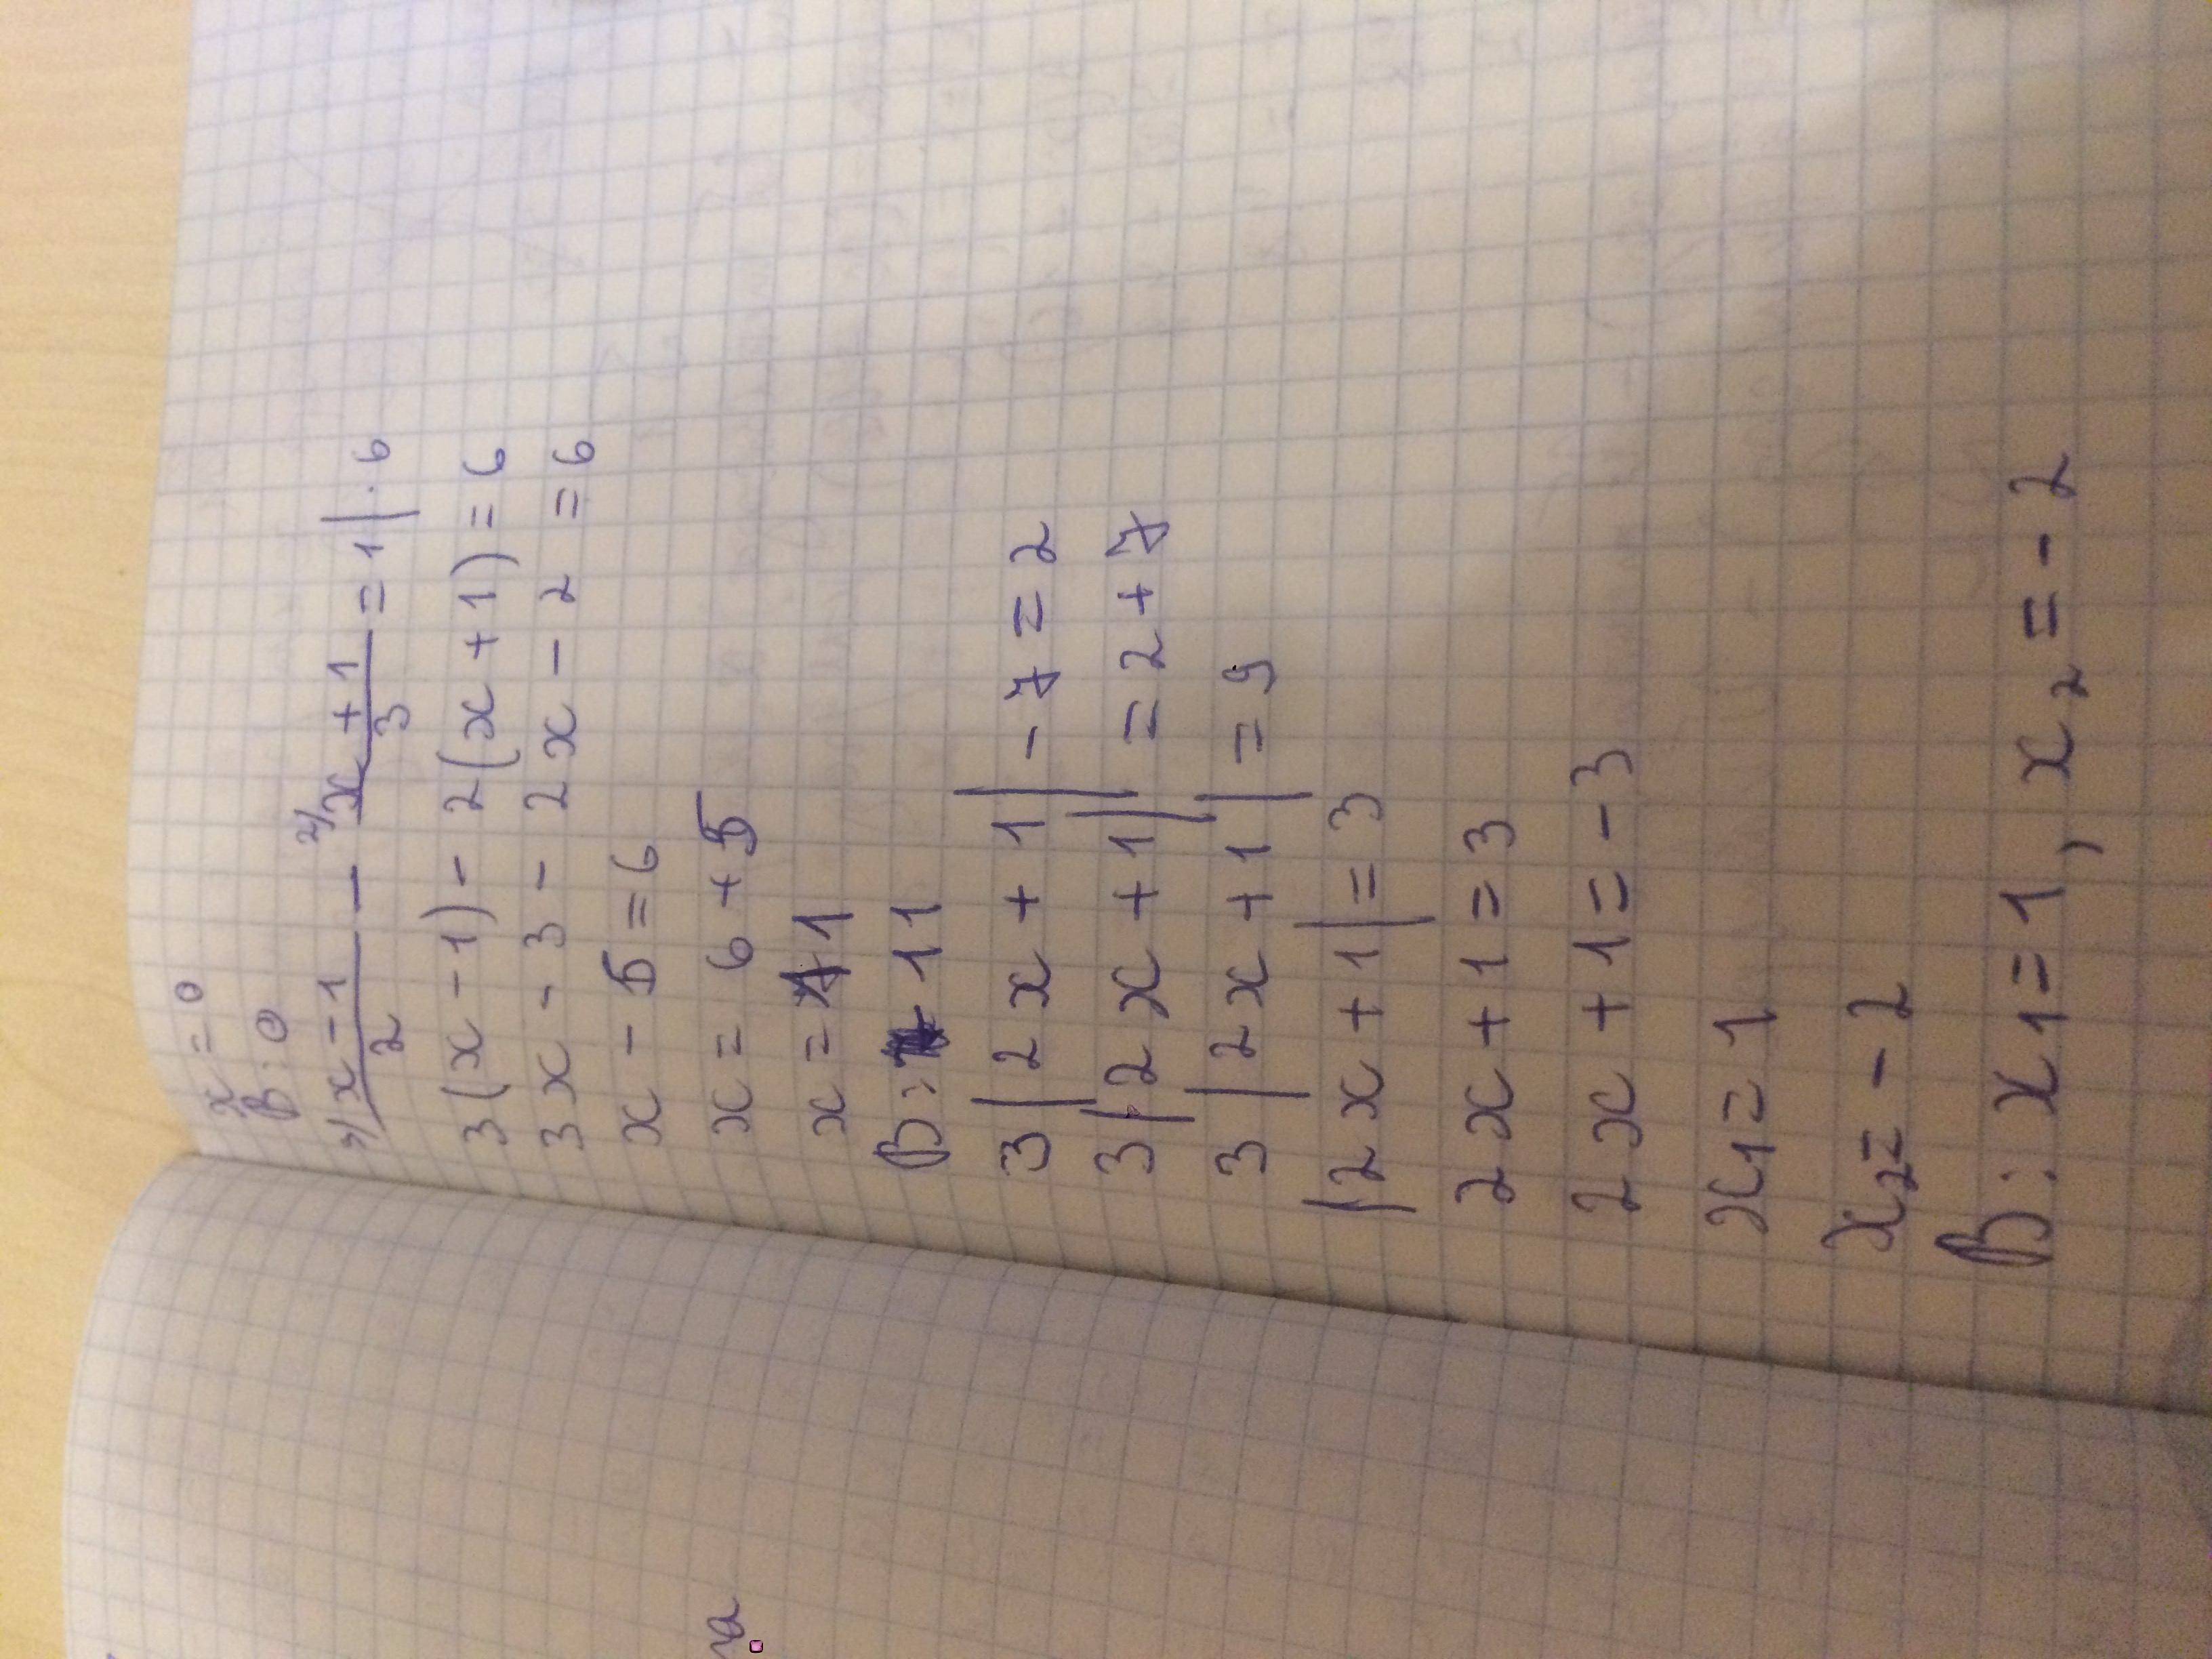 x = 0
В: 0
3/ (x - 1)/2 - 2/ (x + 1)/3 = 1 | · 6
3(x - 1) - 2(x + 1) = 6
3x - 3 - 2x - 2 = 6
x - 5 = 6
x = 6 + 5
x = 11
В: 11
3|2x + 1| - 7 = 2
3|2x + 1| = 2 + 7
3|2x + 1| = 9
|2x + 1| = 3
2x + 1 = 3
2x + 1 = -3
x₁ = 1
x₂ = -2
В: x₁ = 1, x₂ = -2